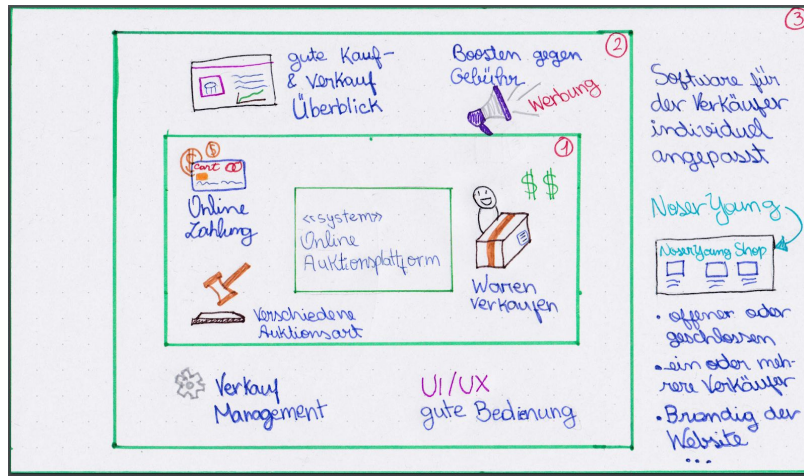 3
2
gute Kauf-
& Verkauf
Überblick
Boosten gegen
Gebühr
Werbung
1
$ $
Cart
Online
Zahlung
«system»
Online
Auktionsplattform
$ $
Waren
verkaufen
Verschiedene
Auktionsart
Verkauf
Management
UI/UX
gute Bedienung
Software für
der Verkäufer
individuel
angepasst
NoserYoung
NoserYoung Shop
• offener oder
geschlossen
• ein oder meh-
rere Verkäufer
• Brandig der
Website
...